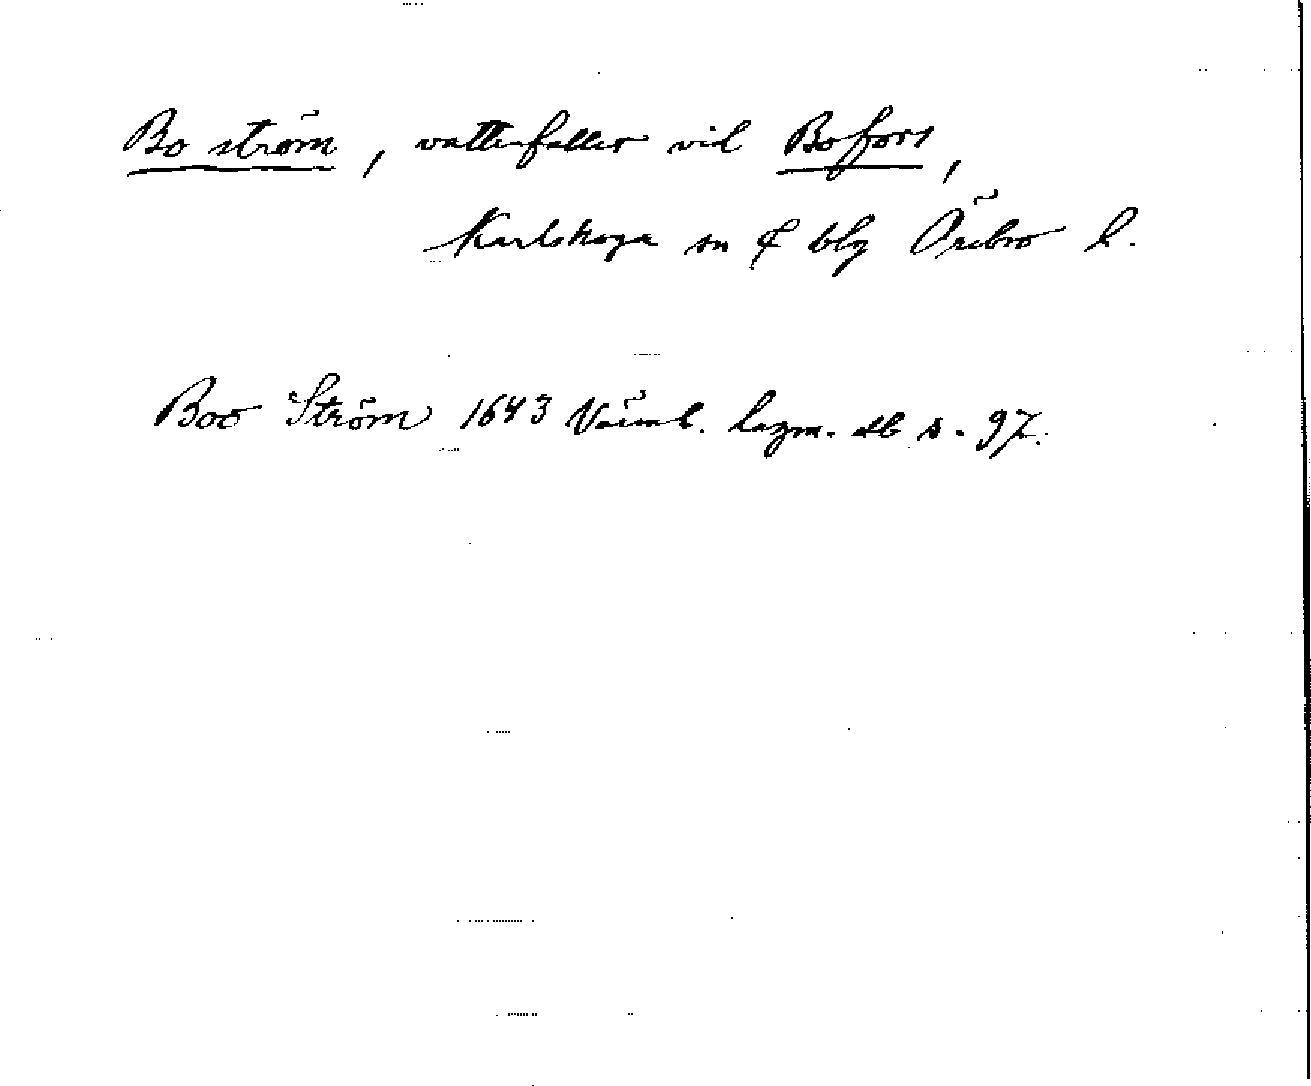 Bo ström, vattenfallet vid Bofors,
Karlskoga sn & blg Örebro l.
Boo Ström 1643 Värml. lagm. db s. 97.